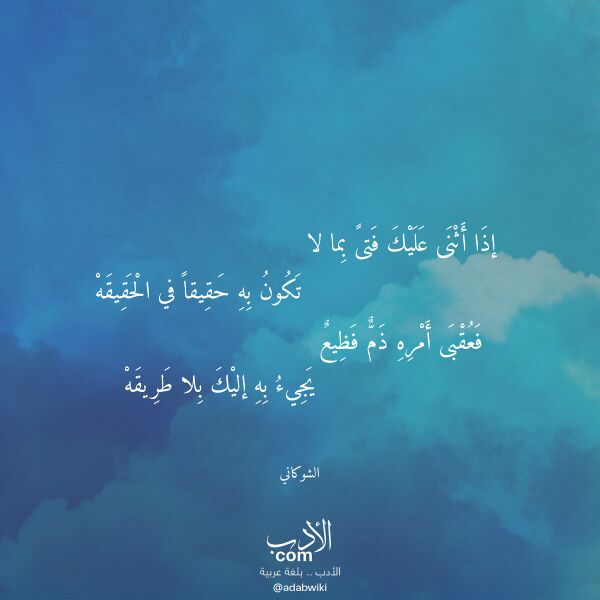 إِذَا أَثْنَى عَلَيْكَ فَتىً بِما لا
تَكُونُ بِهِ حَقِيقاً في الْحَقِيقَهْ
فَعُقْبَى أَمْرِهِ ذَمٌّ فَظِيعٌ
يَجِيءُ بِهِ إليْكَ بِلا طَرِيقَهْ
الشوكاني
الأدب
com
الأدب .. بلغة عربية
@adabwiki